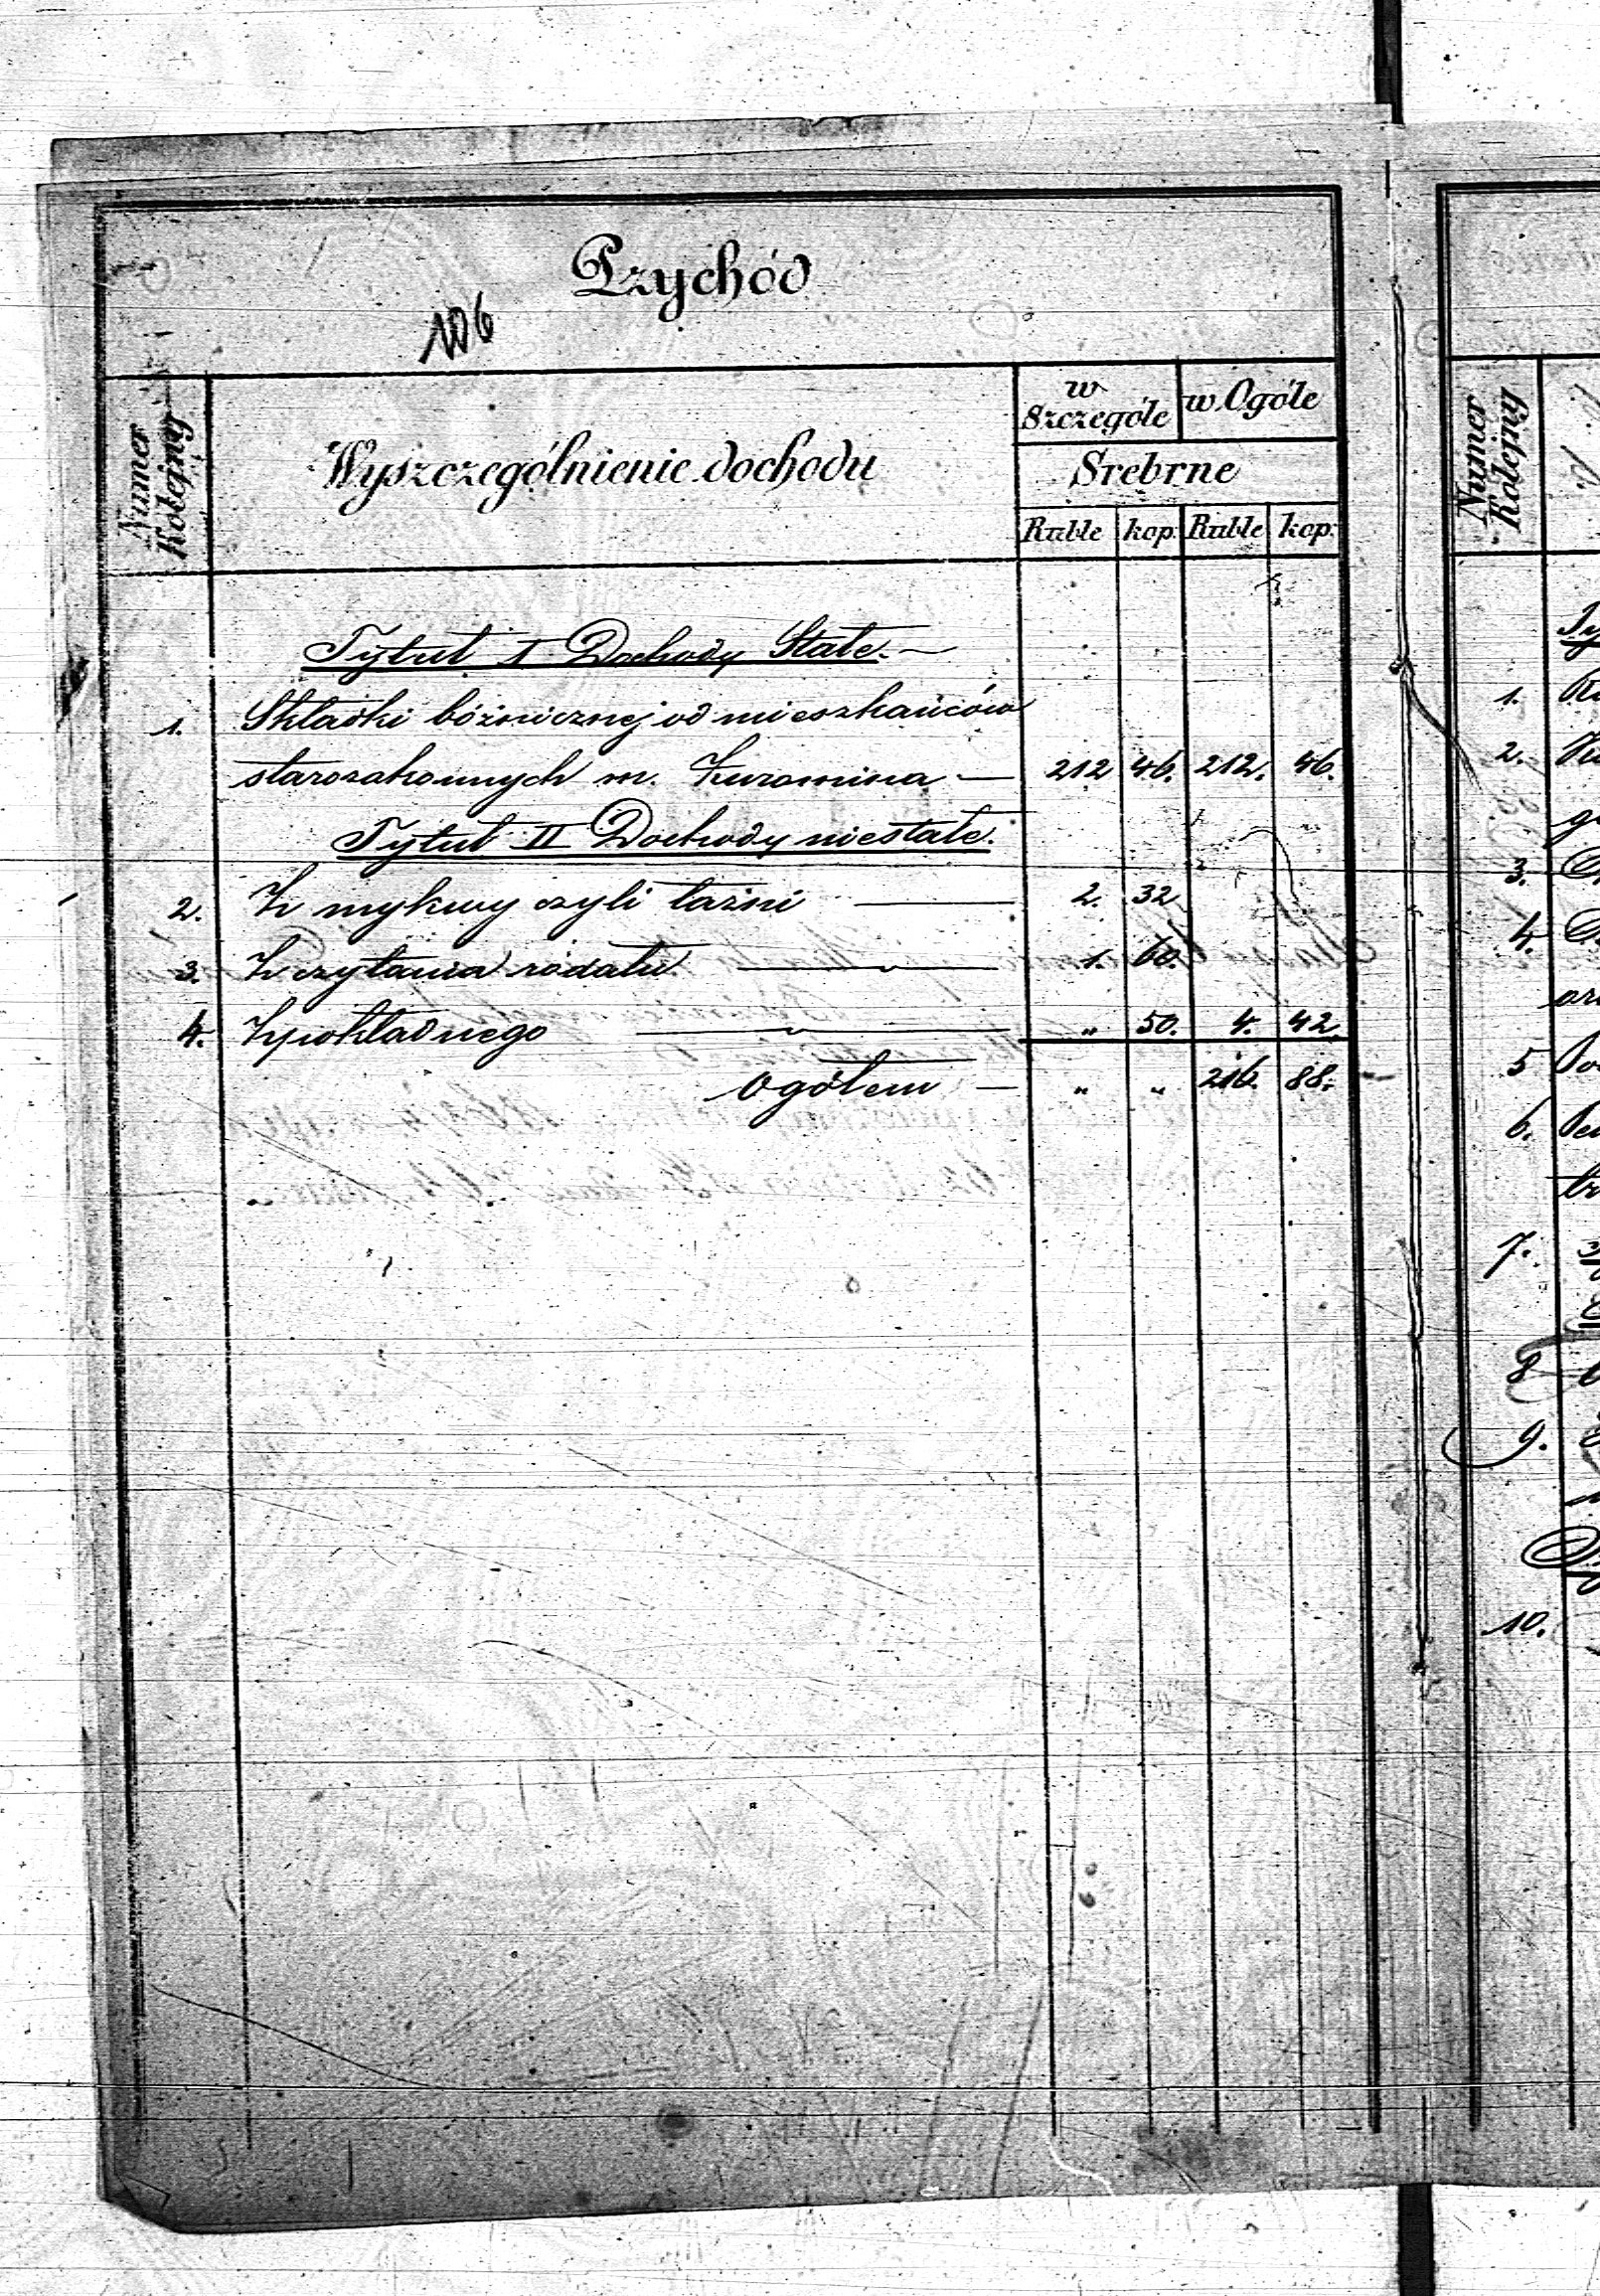 Przychód
106
Numer Kolejny
Wyszczególnienie dochodu
w Szczególe
w Ogóle
Srebrne
Ruble kop. Ruble kop.
Tytuł I Dochody Stałe.—
1. Składki bóżnicznej od mieszkańców
starozakonnych m. Kuromina — 212 46. 212. 46.
Tytuł II Dochody niestałe.
2. Z mykwy czyli łaźni — 2. 32
3. Z czytania rodału — 1. 60.
4. Z pokładnego — " 50. 4. 42
Ogółem — " " 216. 88.
Numer Kolejny
1.
2.
3.
4.
5
6.
7.
8
9.
10.